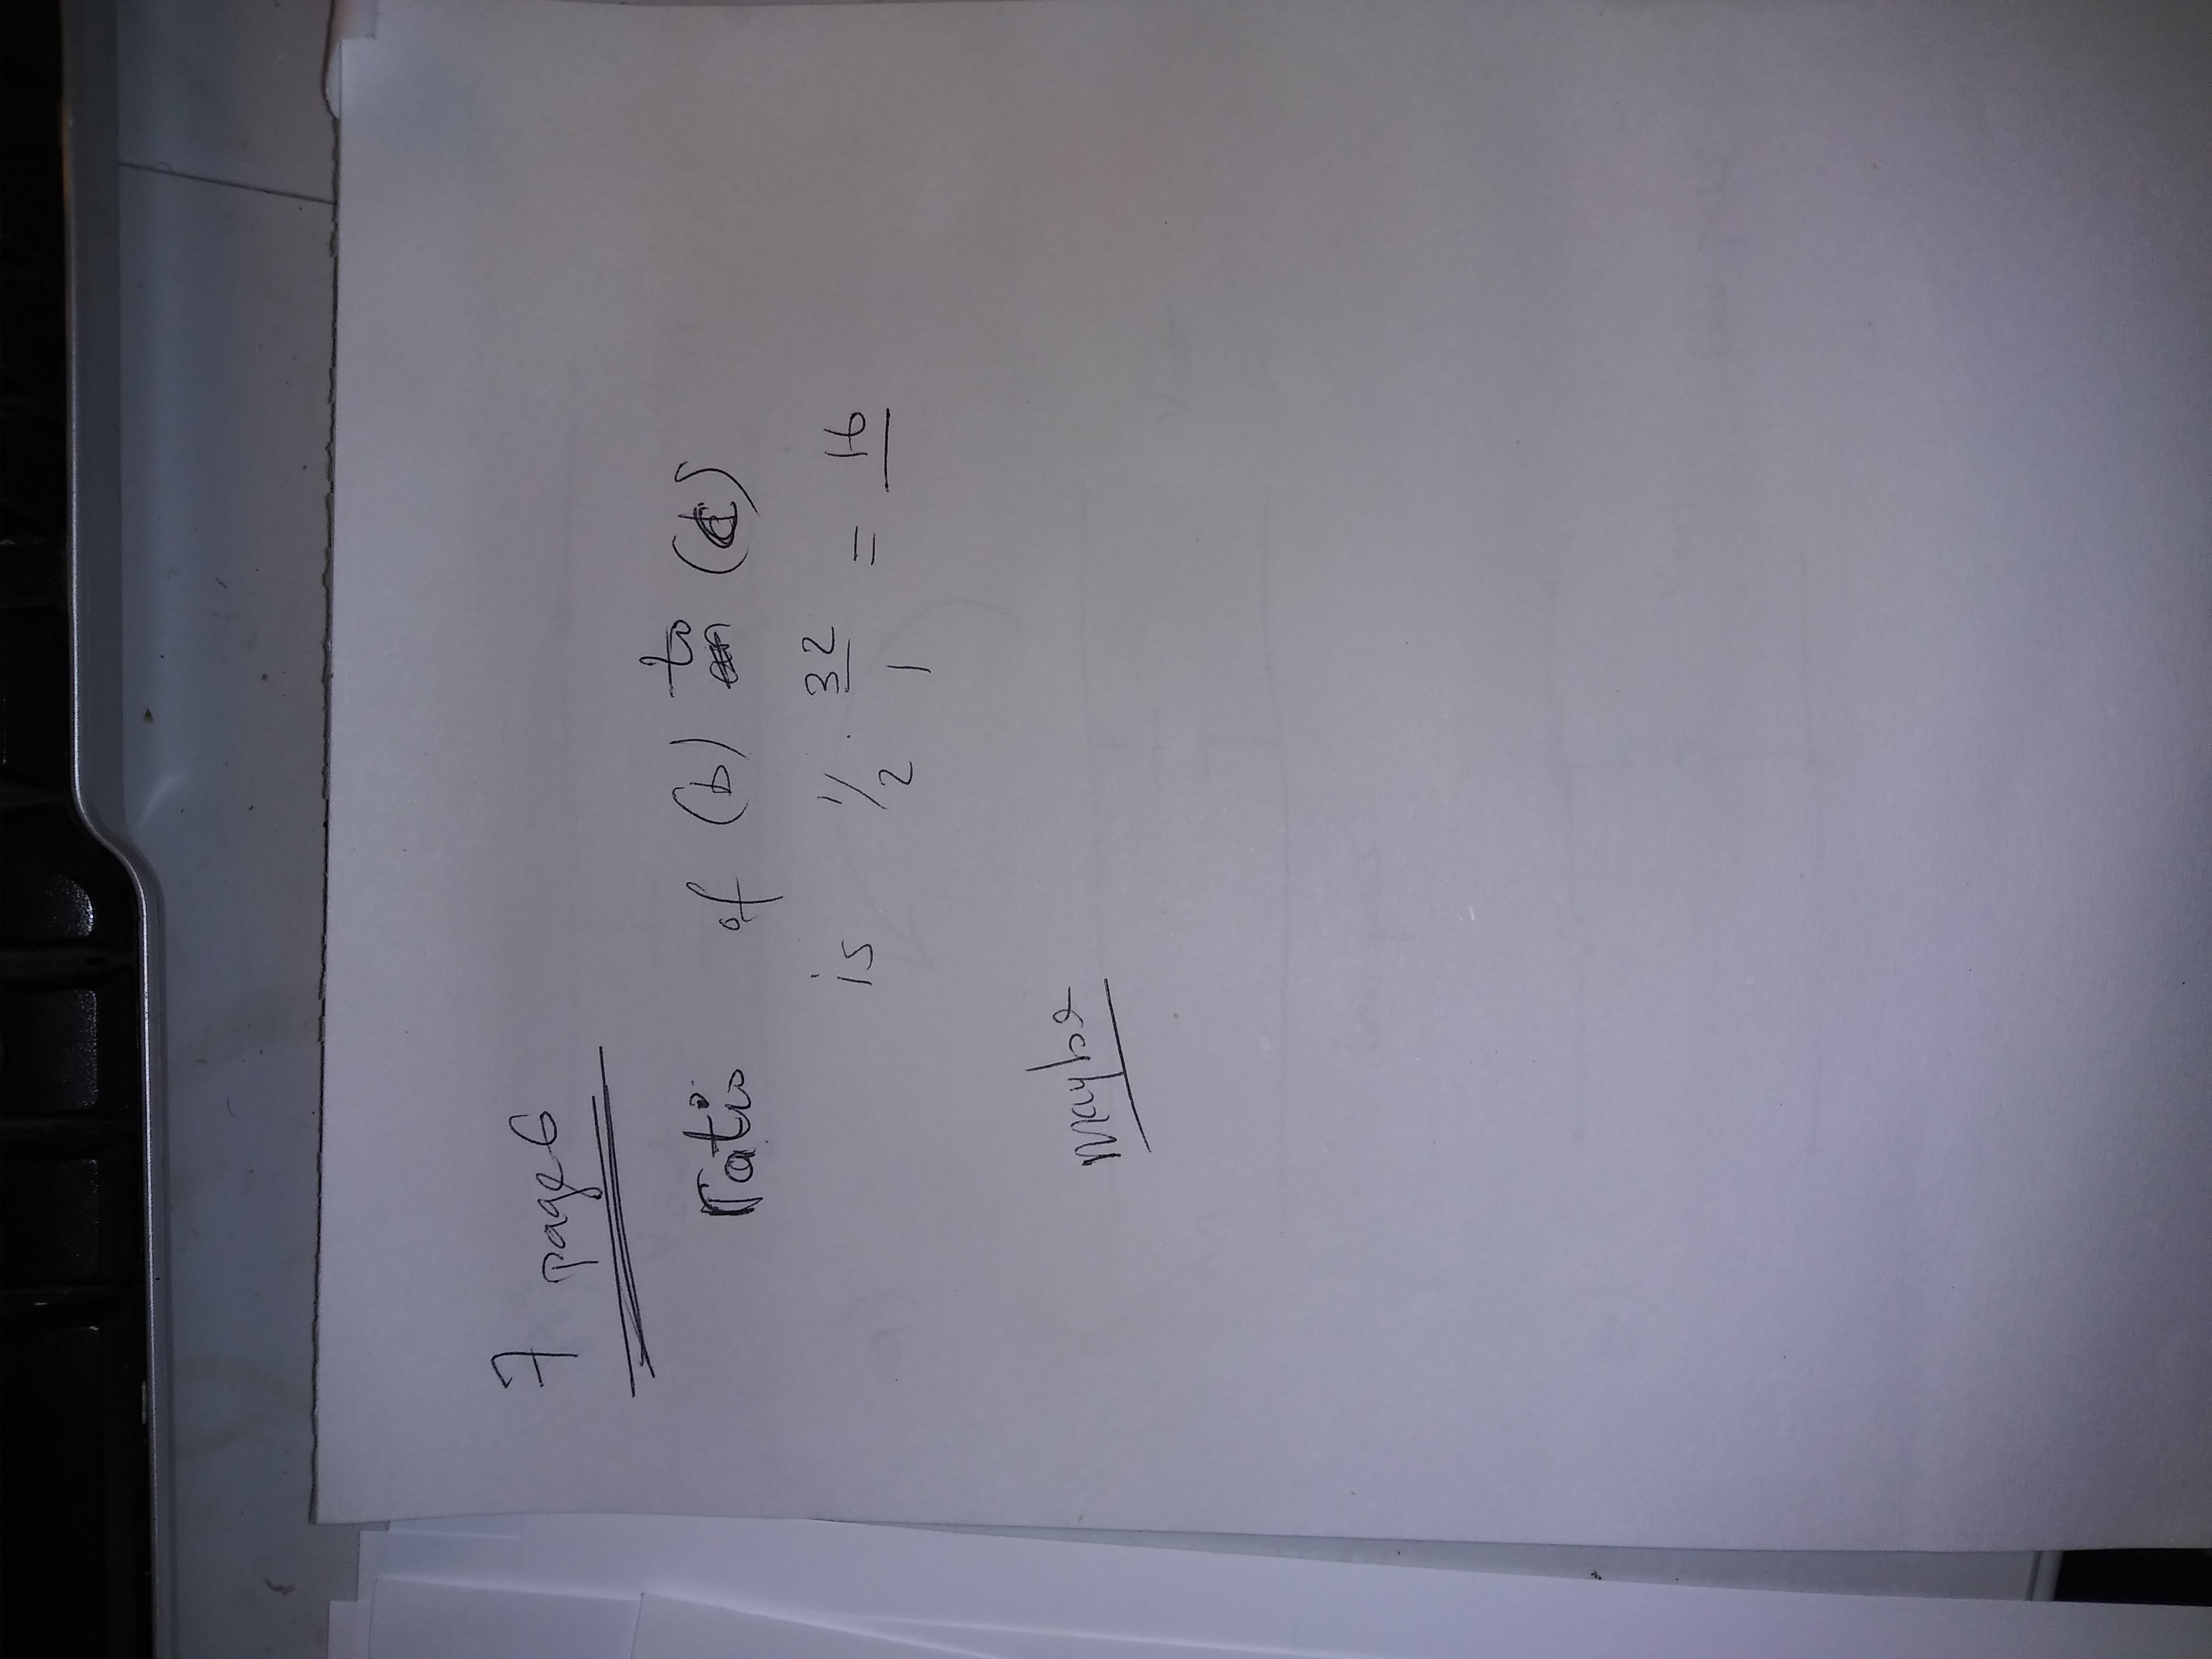 7 page 6
ratio of (b) to (c)
is 1/2 · 32/1 = 16
maybe